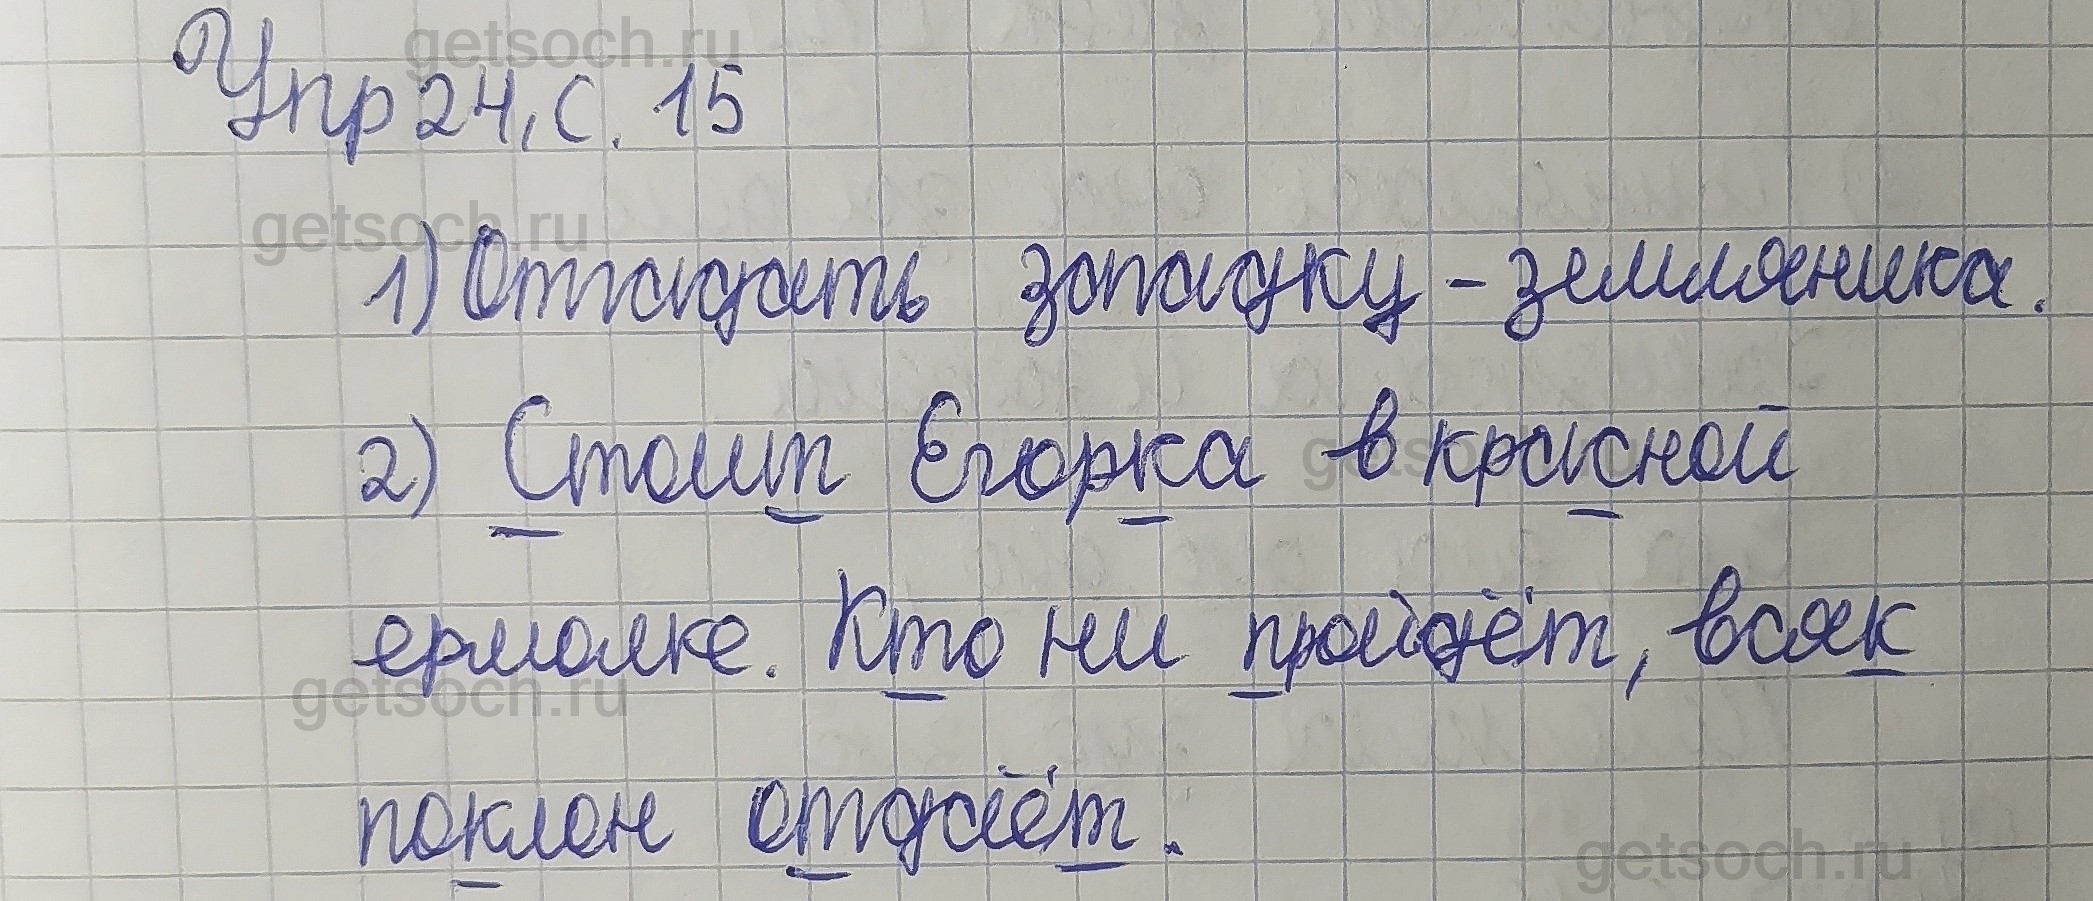 getsoch.ru
Упр 24, с. 15
getsoch.ru
1) Отгадать загадку - земляника.
2) Стоит Егорка в красной
getsoch.ru
ермолке. Кто ни пройдёт, всяк
getsoch.ru
поклон отдаёт.
getsoch.ru